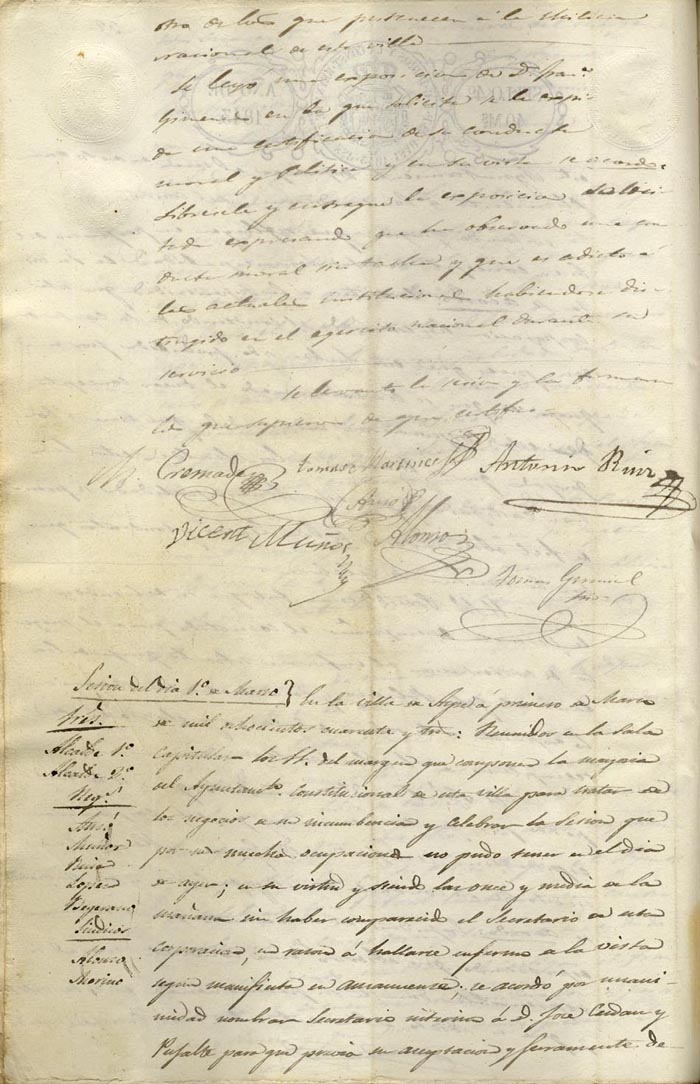 otra de los que pertenecen á la Milicia
nacional de esta villa
Se leyó una exposicion de D. Fran.co
Gimenez en la que solicita se le expi-
da una certificacion de su conducta
moral y Politica y en su vista se acordó
librarle y entregue la exposicion
expresando que ha observado una con-
ducta moral sin tacha y que es adicto á
las actuales instituciones habiendose dis-
tinguido en el egercito nacional durante su
servicio
Se levantó la sesion y la firmaron
los que supieron de que certifico
Cremades Tomas Martinez Antonio Ruiz
Vicent Muñoz Alonso
Sesion del dia 1.º de Marzo
En la villa de Aspe á primero de Marzo
de mil ochocientos cuarenta y tres: Reunidos en la Sala
capitular los SS. del margen que componen la mayoria
del Ayuntam.to Constitucional de esta villa para tratar de
los negocios de su incumbencia y celebrar la sesion que
por sus muchas ocupaciones no pudo tener en el dia
de ayer; en su virtud y siendo las once y media de la
mañana sin haber comparecido el Secretario de esta
corporacion, en razon á hallarse enfermo de la vista
segun manifiesta su amanuense; se acordó por unani-
midad nombrar Secretario interino á D. José Cerdan y
Pujalte para que previa su aceptacion y juramento de
Alcalde 1.º
Alcalde 2.º
Reg.s
Muñoz
Ruiz
Lopez
Sindicos
Alonso
Merino